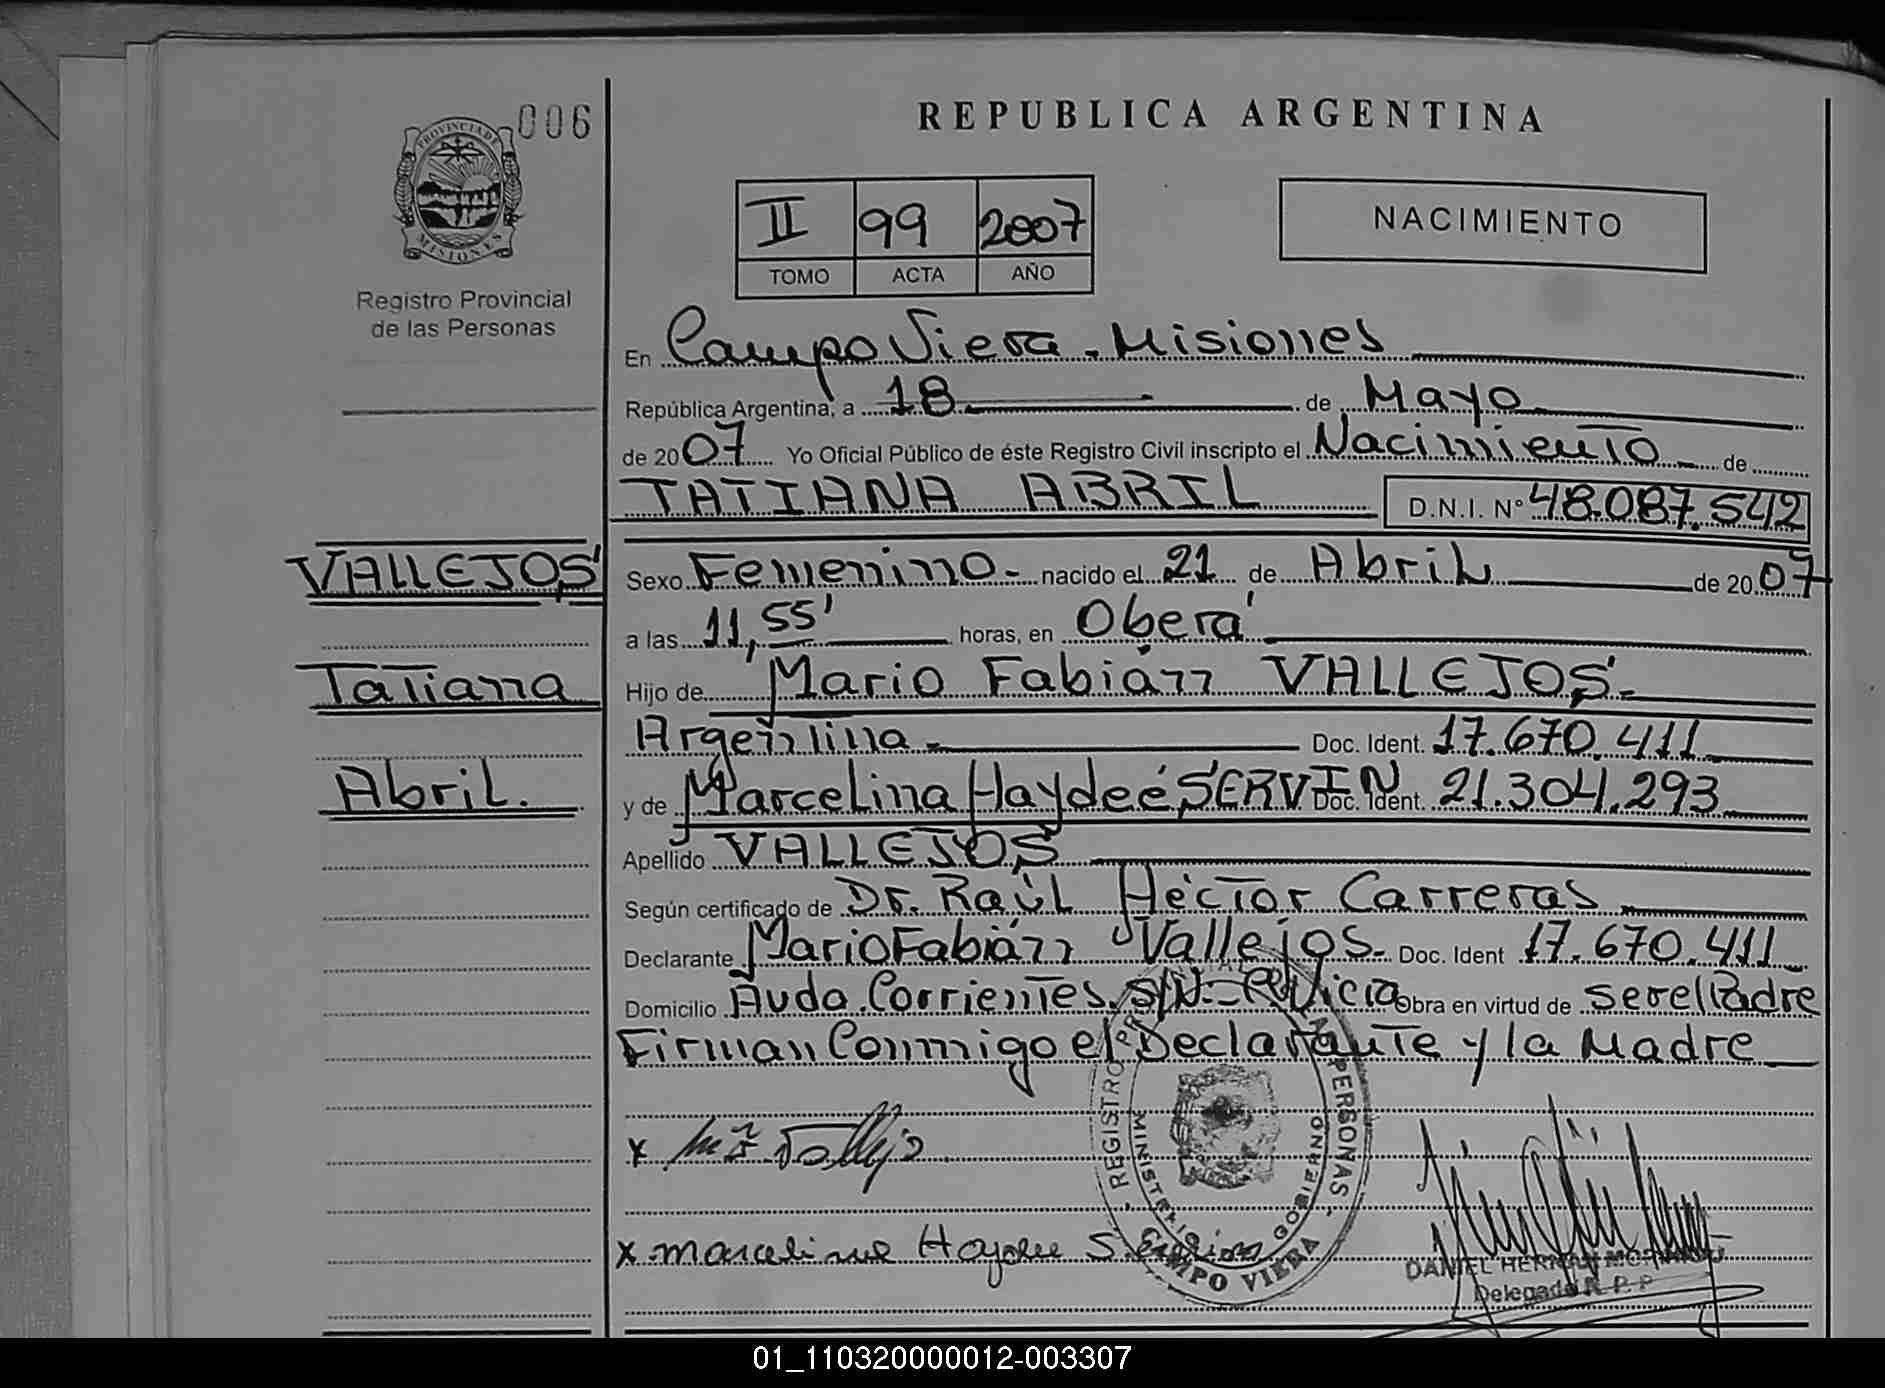 006
PROVINCIA DE
MISIONES
Registro Provincial
de las Personas
VALLEJOS
Tatiana
Abril.
REPUBLICA ARGENTINA
II 99 2007
TOMO ACTA AÑO
NACIMIENTO
En Campo Viera - Misiones
República Argentina, a 18 de Mayo
de 2007 Yo Oficial Público de éste Registro Civil inscripto el Nacimiento de
TATIANA ABRIL D.N.I. N° 48.087.542
Sexo Femenino - nacido el 21 de Abril de 2007
a las 11,55' horas, en Oberá
Hijo de Mario Fabián VALLEJOS -
Argentina - Doc. Ident. 17.670.411
y de Marcelina Haydeé SERVIN Doc. Ident. 21.304.293
Apellido VALLEJOS
Según certificado de Dr. Raúl Héctor Carreras
Declarante Mario Fabián Vallejos - Doc. Ident 17.670.411
Domicilio Avda. Corrientes. S/N - Obra en virtud de ser el Padre
Firman Conmigo el Declarante y la Madre
x
x Marcelina Haydee
REGISTRO PERSONAS
MINISTERIO GOBIERNO
CAMPO VIERA
DANIEL HERNAN
Delegado R. P. P
01_110320000012-003307